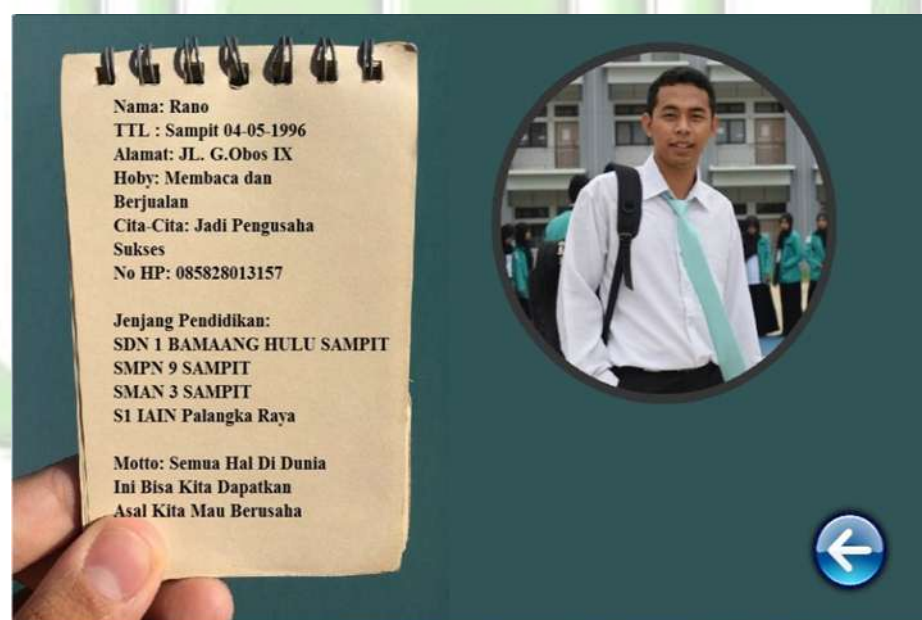 Nama: Rano
TTL : Sampit 04-05-1996
Alamat: JL. G.Obos IX
Hoby: Membaca dan
Berjualan
Cita-Cita: Jadi Pengusaha
Sukses
No HP: 085828013157
Jenjang Pendidikan:
SDN 1 BAMAANG HULU SAMPIT
SMPN 9 SAMPIT
SMAN 3 SAMPIT
S1 IAIN Palangka Raya
Motto: Semua Hal Di Dunia
Ini Bisa Kita Dapatkan
Asal Kita Mau Berusaha